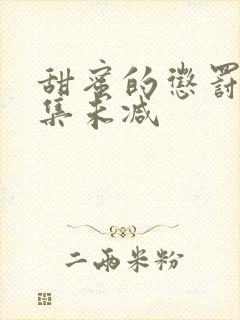 甜蜜的懲罰
集未减
二兩米粉